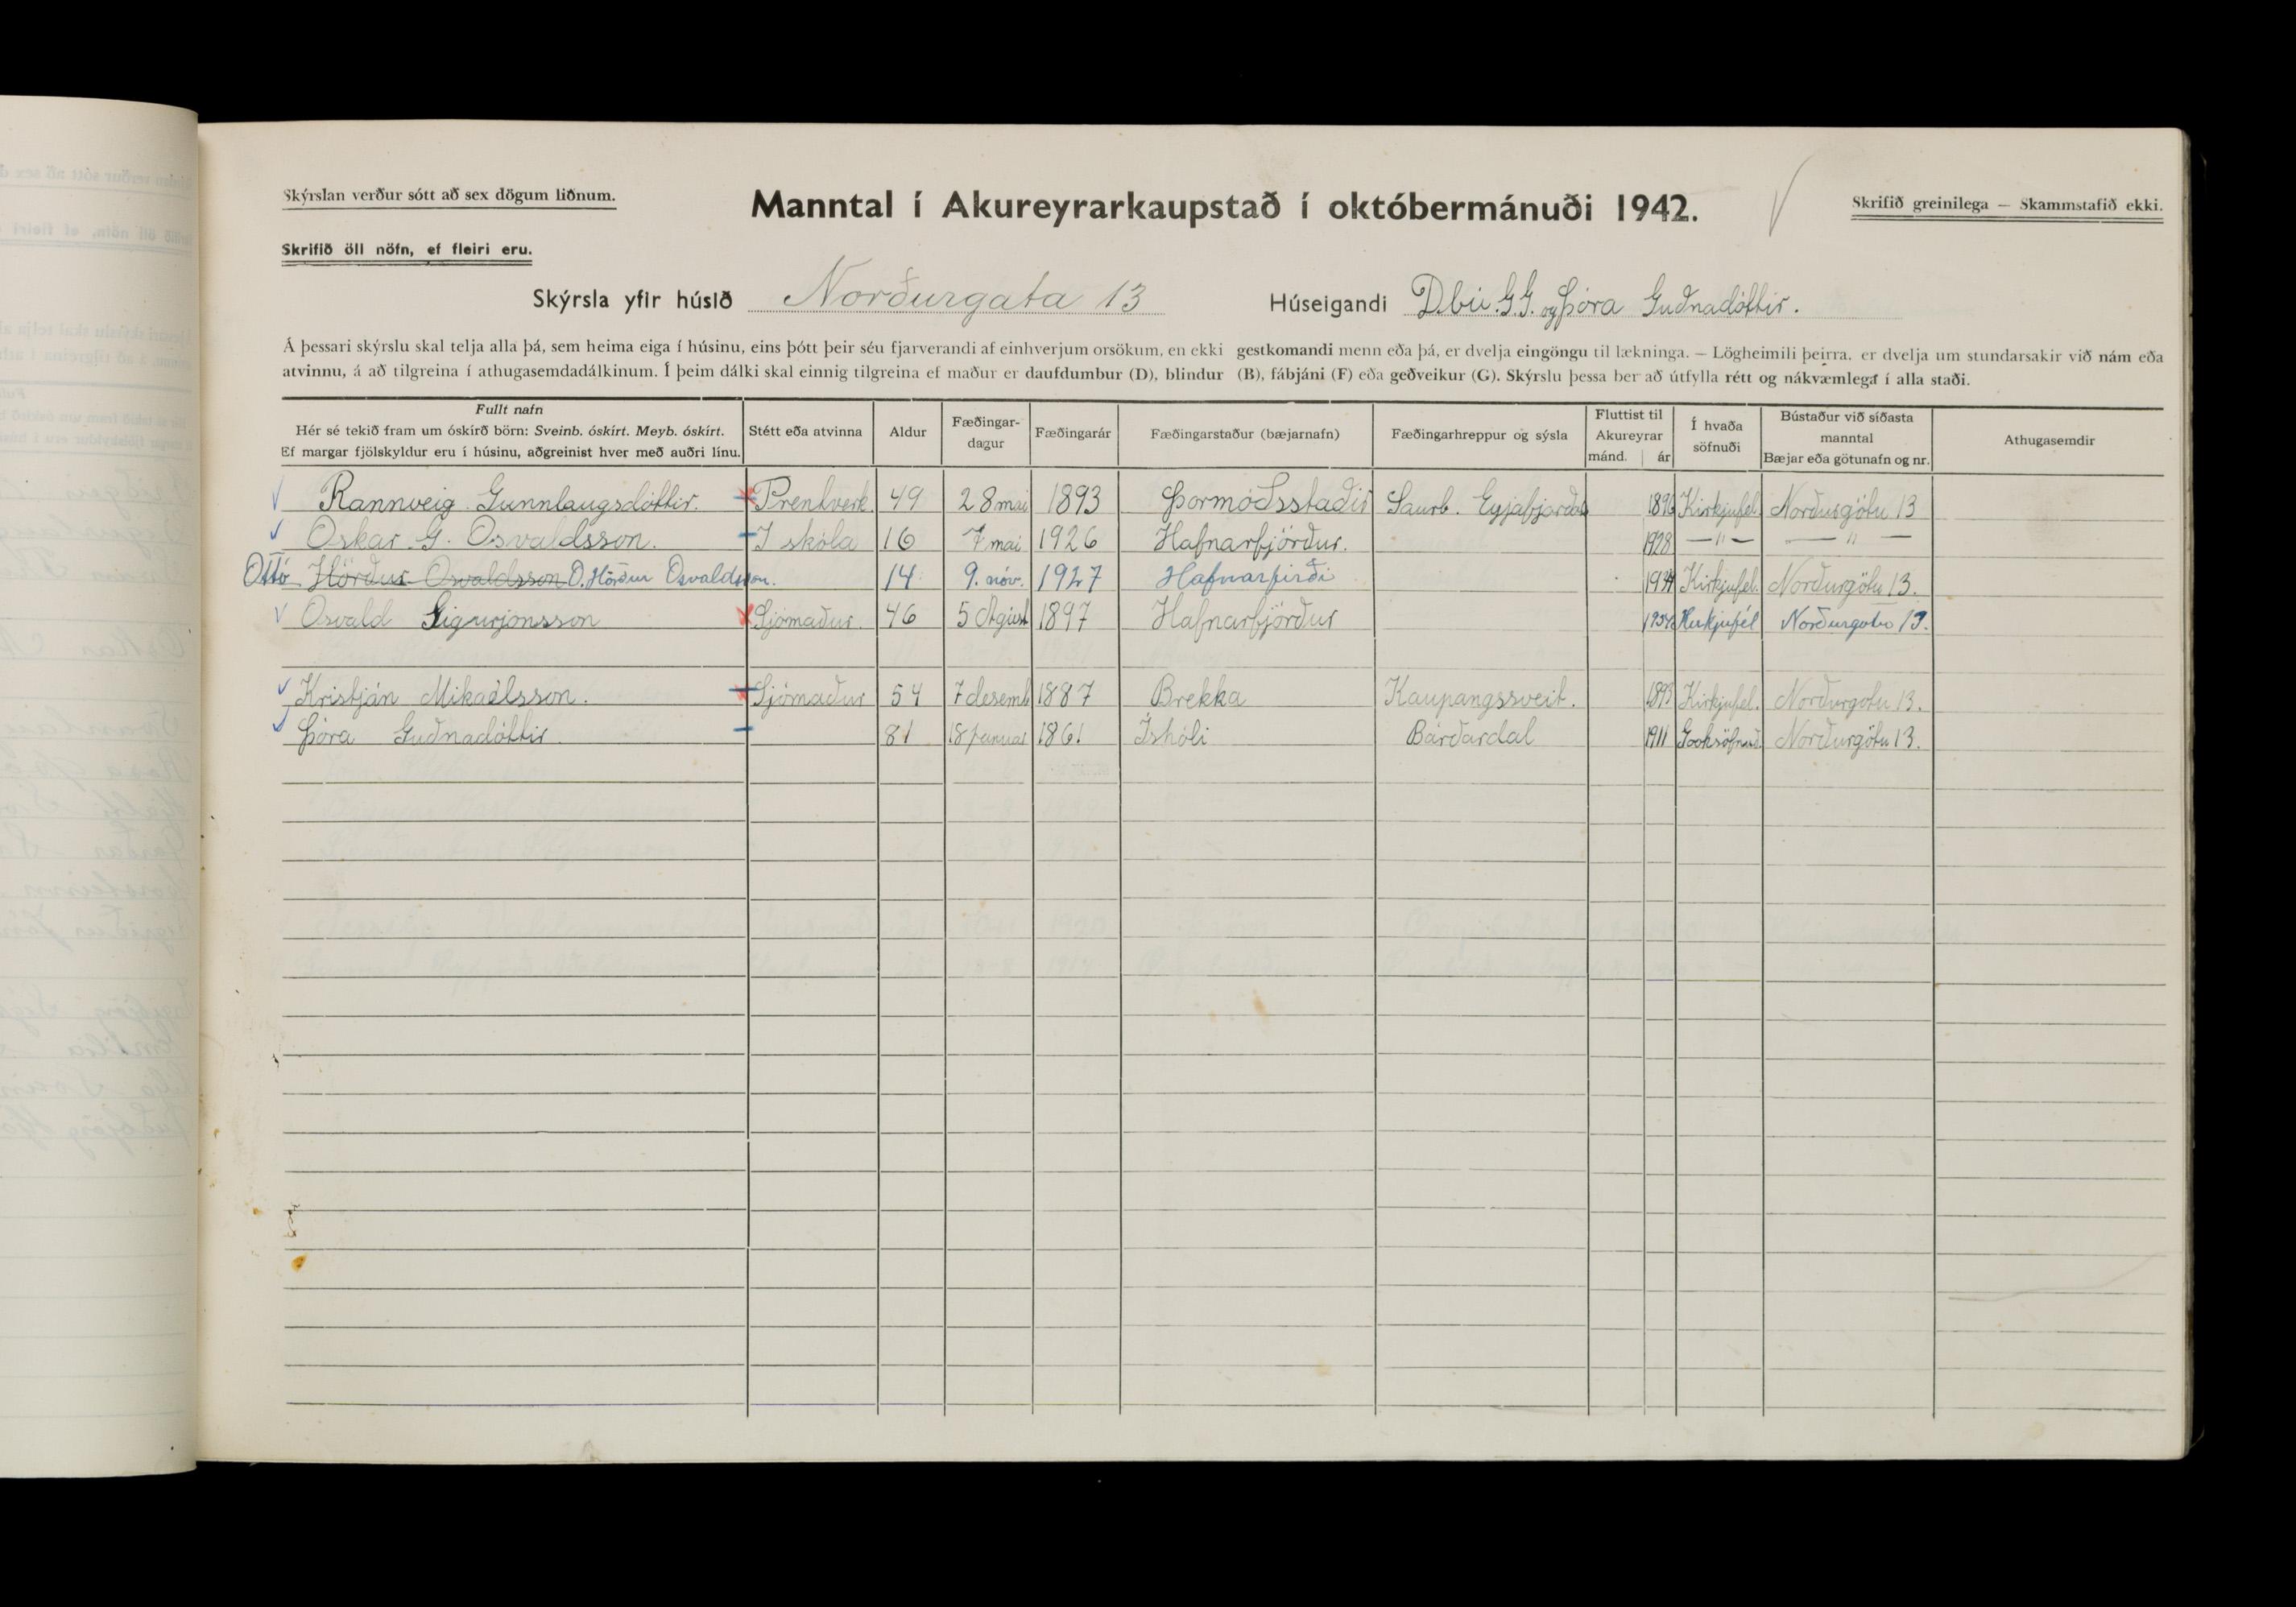 Skýrslan verður sótt að sex dögum liðnum.
Manntal í Akureyrarkaupstað í októbermánuði 1942.
Skrifið greinilega — Skammstafið ekki.
Skrifið öll nöfn, ef fleiri eru.
Skýrsla yfir húsið Norðurgata 13 Húseigandi Dbú. G.G. og Þóra Guðnadóttir.
Á þessari skýrslu skal telja alla þá, sem heima eiga í húsinu, eins þótt þeir séu fjarverandi af einhverjum orsökum, en ekki gestkomandi menn eða þá, er dvelja eingöngu til lækninga. — Lögheimili þeirra, er dvelja um stundarsakir við nám eða
atvinnu, á að tilgreina í athugasemdadálkinum. Í þeim dálki skal einnig tilgreina ef maður er daufdumbur (D), blindur (B), fábjáni (F) eða geðveikur (G). Skýrslu þessa ber að útfylla rétt og nákvæmlega í alla staði.
Fullt nafn
Hér sé tekið fram um óskírð börn: Sveinb. óskírt. Meyb. óskírt.
Ef margar fjölskyldur eru í húsinu, aðgreinist hver með auðri línu.
Stétt eða atvinna
Aldur
Fæðingar-
dagur
Fæðingarár
Fæðingarstaður (bæjarnafn)
Fæðingarhreppur og sýsla
Fluttist til
Akureyrar
mánd. ár
Í hvaða
söfnuði
Bústaður við síðasta
manntal
Bæjar eða götunafn og nr.
Athugasemdir
Rannveig Gunnlaugsdóttir. Prentverk 49 28 mai 1893 Þormóðsstaðir Saurb. Eyjafjarðar 1896 Kirkjufél. Norðurgötu 13
Oskar G. Osvaldsson. I skóla 16 7 mai 1926 Hafnarfjörður. 1928 —"— —"—
Ottó Hörður Osvaldsson O. Hörður Osvaldsson. 14 9. nóv. 1927 Hafnarfirði Kirkjufel. Norðurgötu 13.
Osvald Sigurjónsson Sjómaður. 46 5 Agúst 1897 Hafnarfjörður Kirkjufél Norðurgötu 13.
Kristján Mikaélsson. Sjómaður 54 7 desemb 1887 Brekka Kaupangssveit. 1893 Kirkjufel. Norðurgötu 13.
Þóra Guðnadóttir 81 18 januar 1861 Ishóli Bárðardal 1911 Norðurgötu 13.